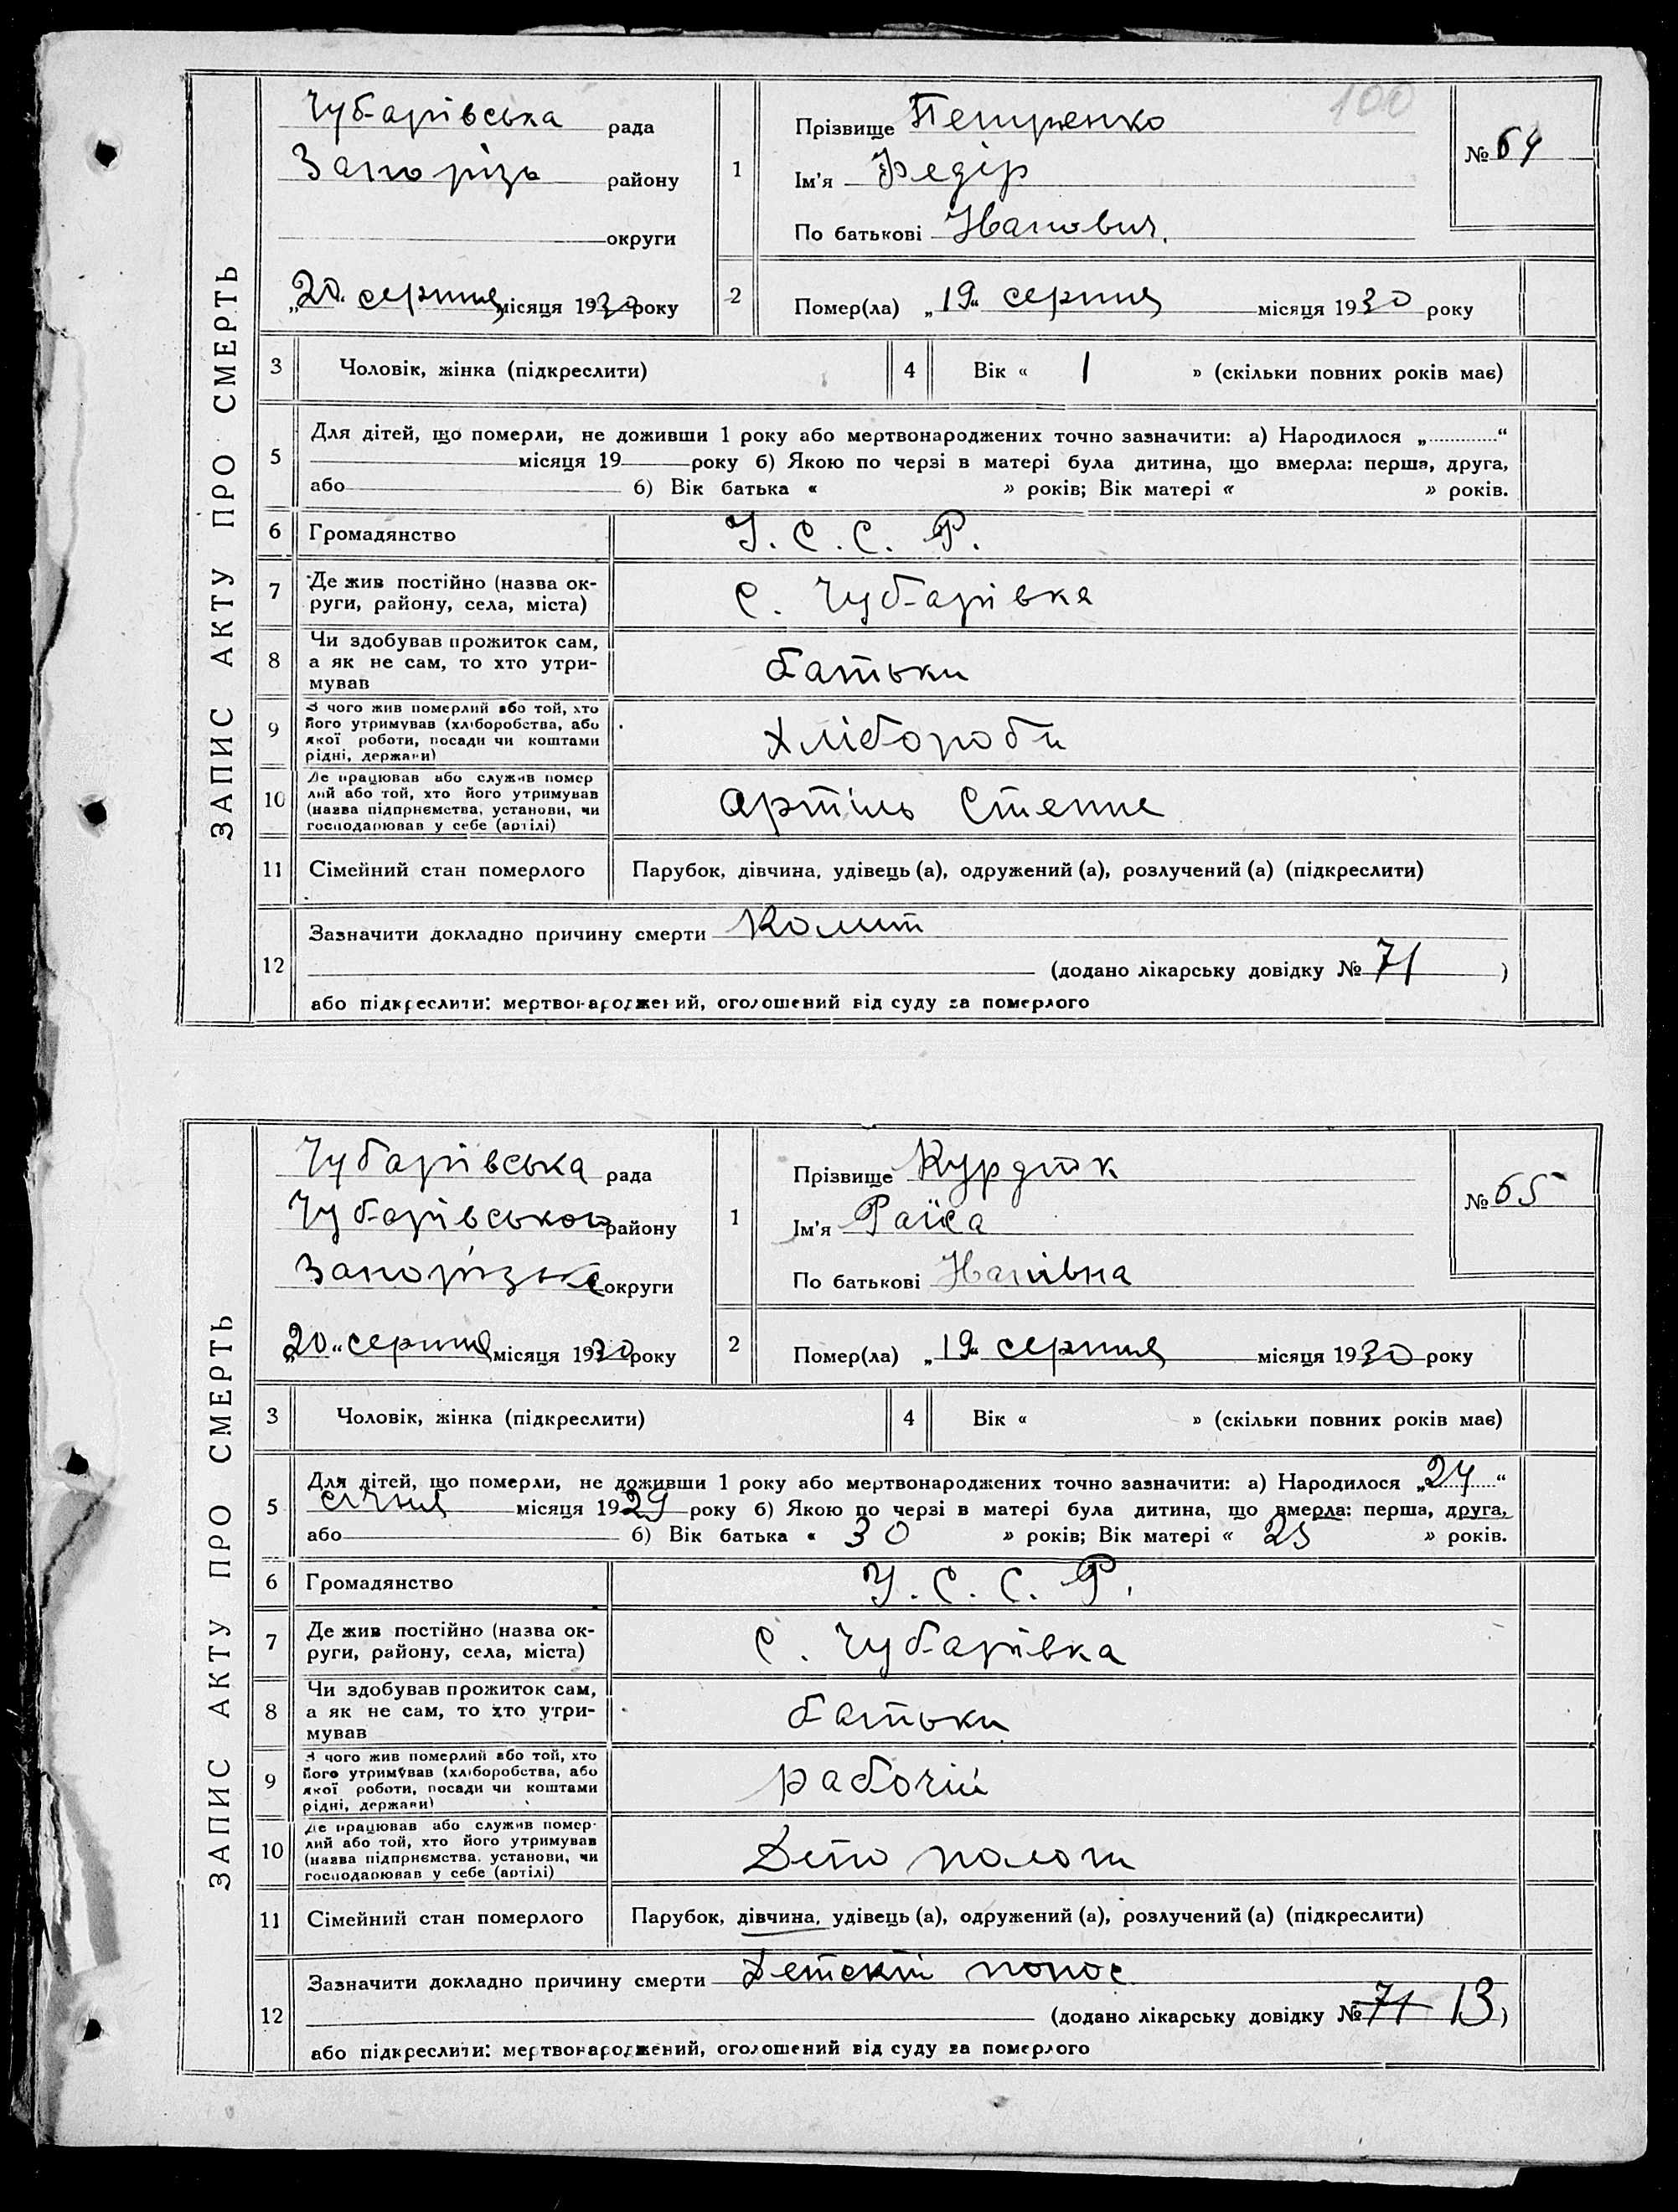 100
ЗАПИС АКТУ ПРО СМЕРТЬ
Чубарівська рада
Запорізь району
округи
„20“ серпня місяця 1930 року
1
Прізвище Петренко
Ім'я Федір
По батькові Іванович.
№ 64
2
Помер(ла) „19“ серпня місяця 1930 року
3 Чоловік, жінка (підкреслити)
4 Вік « 1 » (скільки повних років має)
5
Для дітей, що померли, не доживши 1 року або мертвонароджених точно зазначити: а) Народилося „ “
місяця 19 року б) Якою по черзі в матері була дитина, що вмерла: перша, друга,
або б) Вік батька « » років; Вік матері « » років.
6 Громадянство У. С. С. Р.
7 Де жив постійно (назва ок-
руги, району, села, міста)
с. Чубарівка
8 Чи здобував прожиток сам,
а як не сам, то хто утри-
мував
батьки
9 З чого жив померлий або той, хто
його утримував (хліборобства, або
якої роботи, посади чи коштами
рідні, держави)
хлібороби
10 Де працював або служив помер
лий або той, хто його утримував
(назва підприємства, установи, чи
господарював у себе (артілі)
Артіль
11 Сімейний стан померлого Парубок, дівчина, удівець (а), одружений (а), розлучений (а) (підкреслити)
12
Зазначити докладно причину смерти Колит
(додано лікарську довідку № 71 )
або підкреслити: мертвонароджений, оголошений від суду за померлого
ЗАПИС АКТУ ПРО СМЕРТЬ
Чубарівська рада
Чубарівського району
Запорізьке округи
„20“ серпня місяця 1930 року
1
Прізвище Курдюк
Ім'я Раїса
По батькові Іванівна
№ 65
2
Помер(ла) „19“ серпня місяця 1930 року
3 Чоловік, жінка (підкреслити)
4 Вік « » (скільки повних років має)
5
Для дітей, що померли, не доживши 1 року або мертвонароджених точно зазначити: а) Народилося „24“
січня місяця 1929 року б) Якою по черзі в матері була дитина, що вмерла: перша, друга,
або б) Вік батька « 30 » років; Вік матері « 25 » років.
6 Громадянство У. С. С. Р.
7 Де жив постійно (назва ок-
руги, району, села, міста)
с. Чубарівка
8 Чи здобував прожиток сам,
а як не сам, то хто утри-
мував
батьки
9 З чого жив померлий або той, хто
його утримував (хліборобства, або
якої роботи, посади чи коштами
рідні, держави)
рабочій
10 Де працював або служив помер-
лий або той, хто його утримував
(назва підприємства, установи, чи
господарював у себе (артілі)
Депо пологи
11 Сімейний стан померлого Парубок, дівчина, удівець (а), одружений (а), розлучений (а) (підкреслити)
12
Зазначити докладно причину смерти Детскій понос
(додано лікарську довідку № 71 13 )
або підкреслити: мертвонароджений, оголошений від суду за померлого